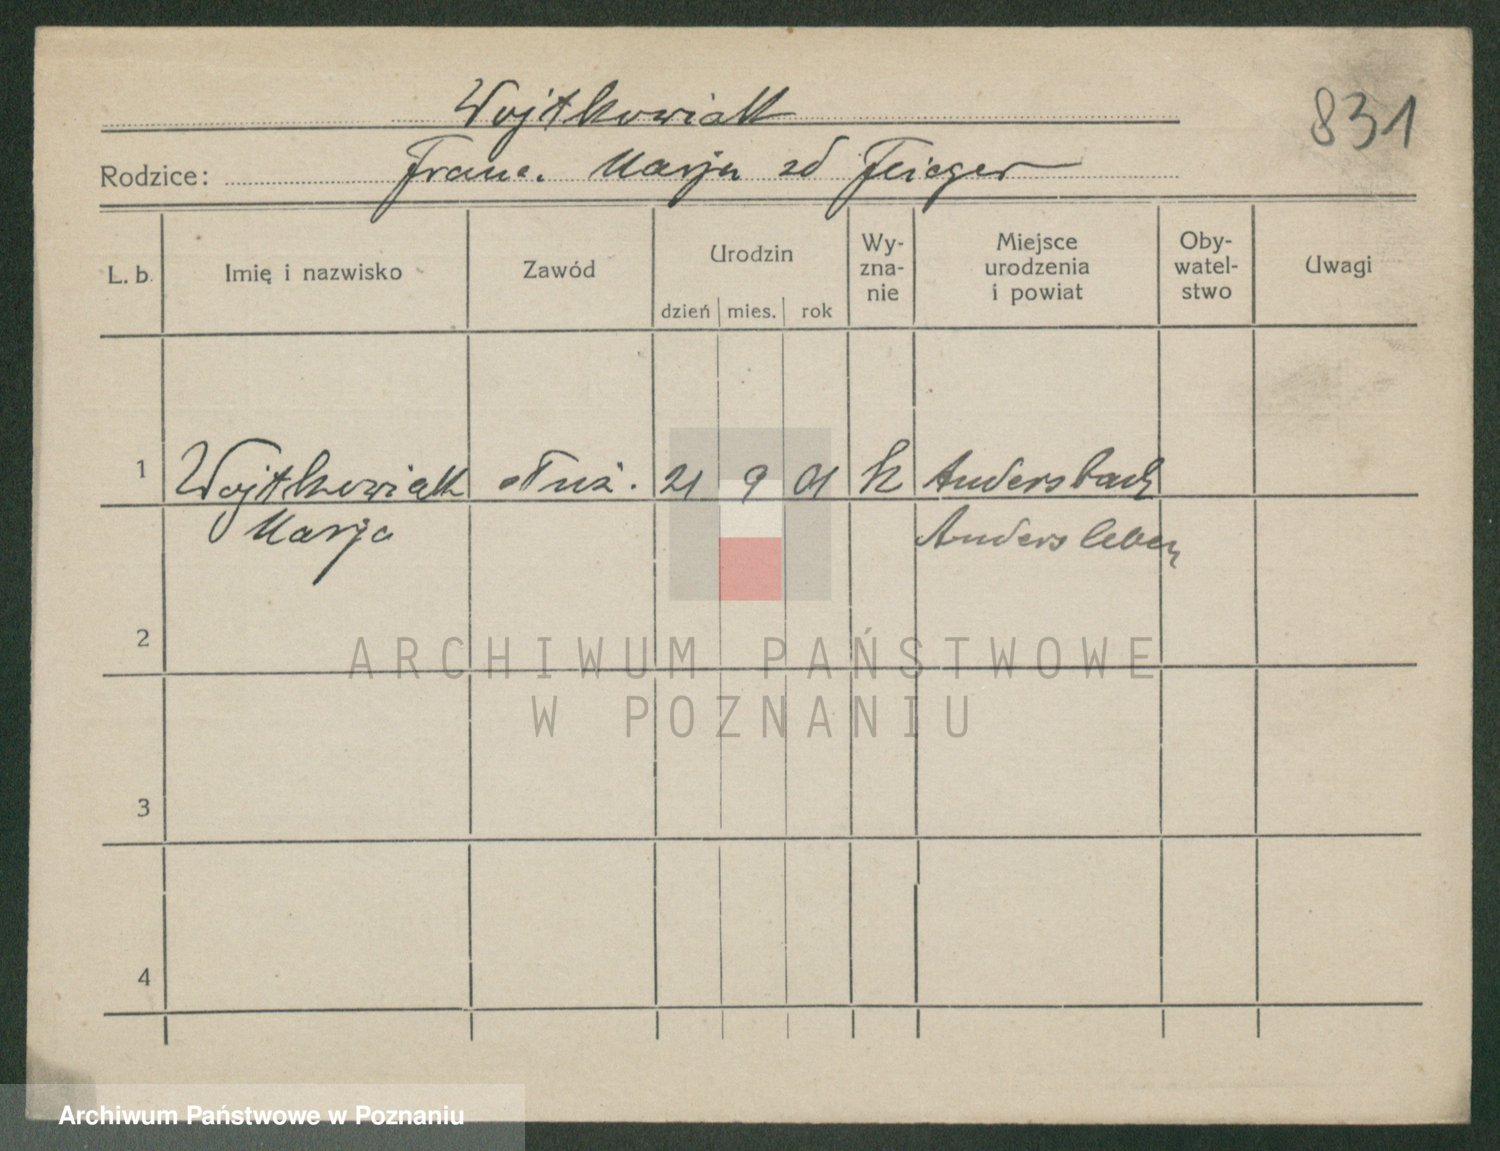 Wojtkowiak
831
Rodzice: Franc. Marja zd Fieger
L. b. Imię i nazwisko Zawód Urodzin dzień mies. rok Wy-zna-nie Miejsce urodzenia i powiat Oby-watel-stwo Uwagi
1 Wojtkowiak służ. 21 9 01 k Andersbach
Marja Andersleben
2
ARCHIWUM PAŃSTWOWE
W POZNANIU
3
4
Archiwum Państwowe w Poznaniu